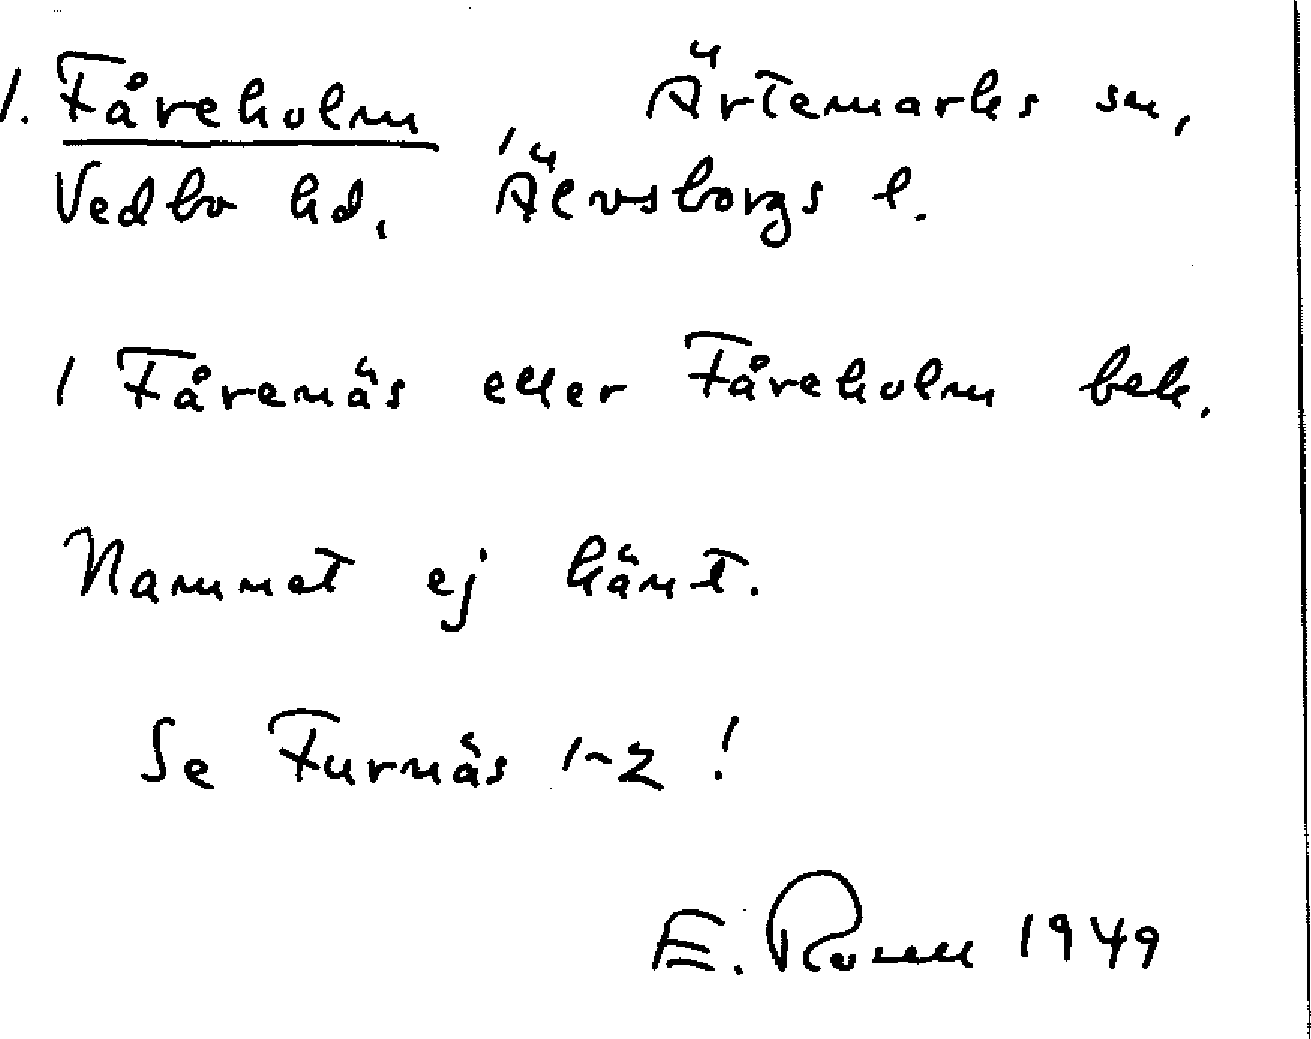 1. Fåreholm Ärtemarks sn,
Vedbo hd, Älvsborgs l.
1 Fårenäs eller Fåreholm bek.
Namnet ej känt.
Se Furnäs 1-2!
E. Rosell 1949